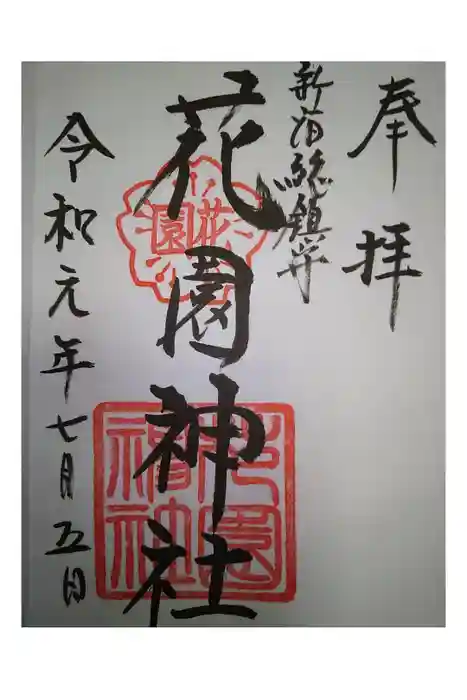 奉拝
新宿総鎮守
花園神社
花園
花園
神社
令和元年七月五日